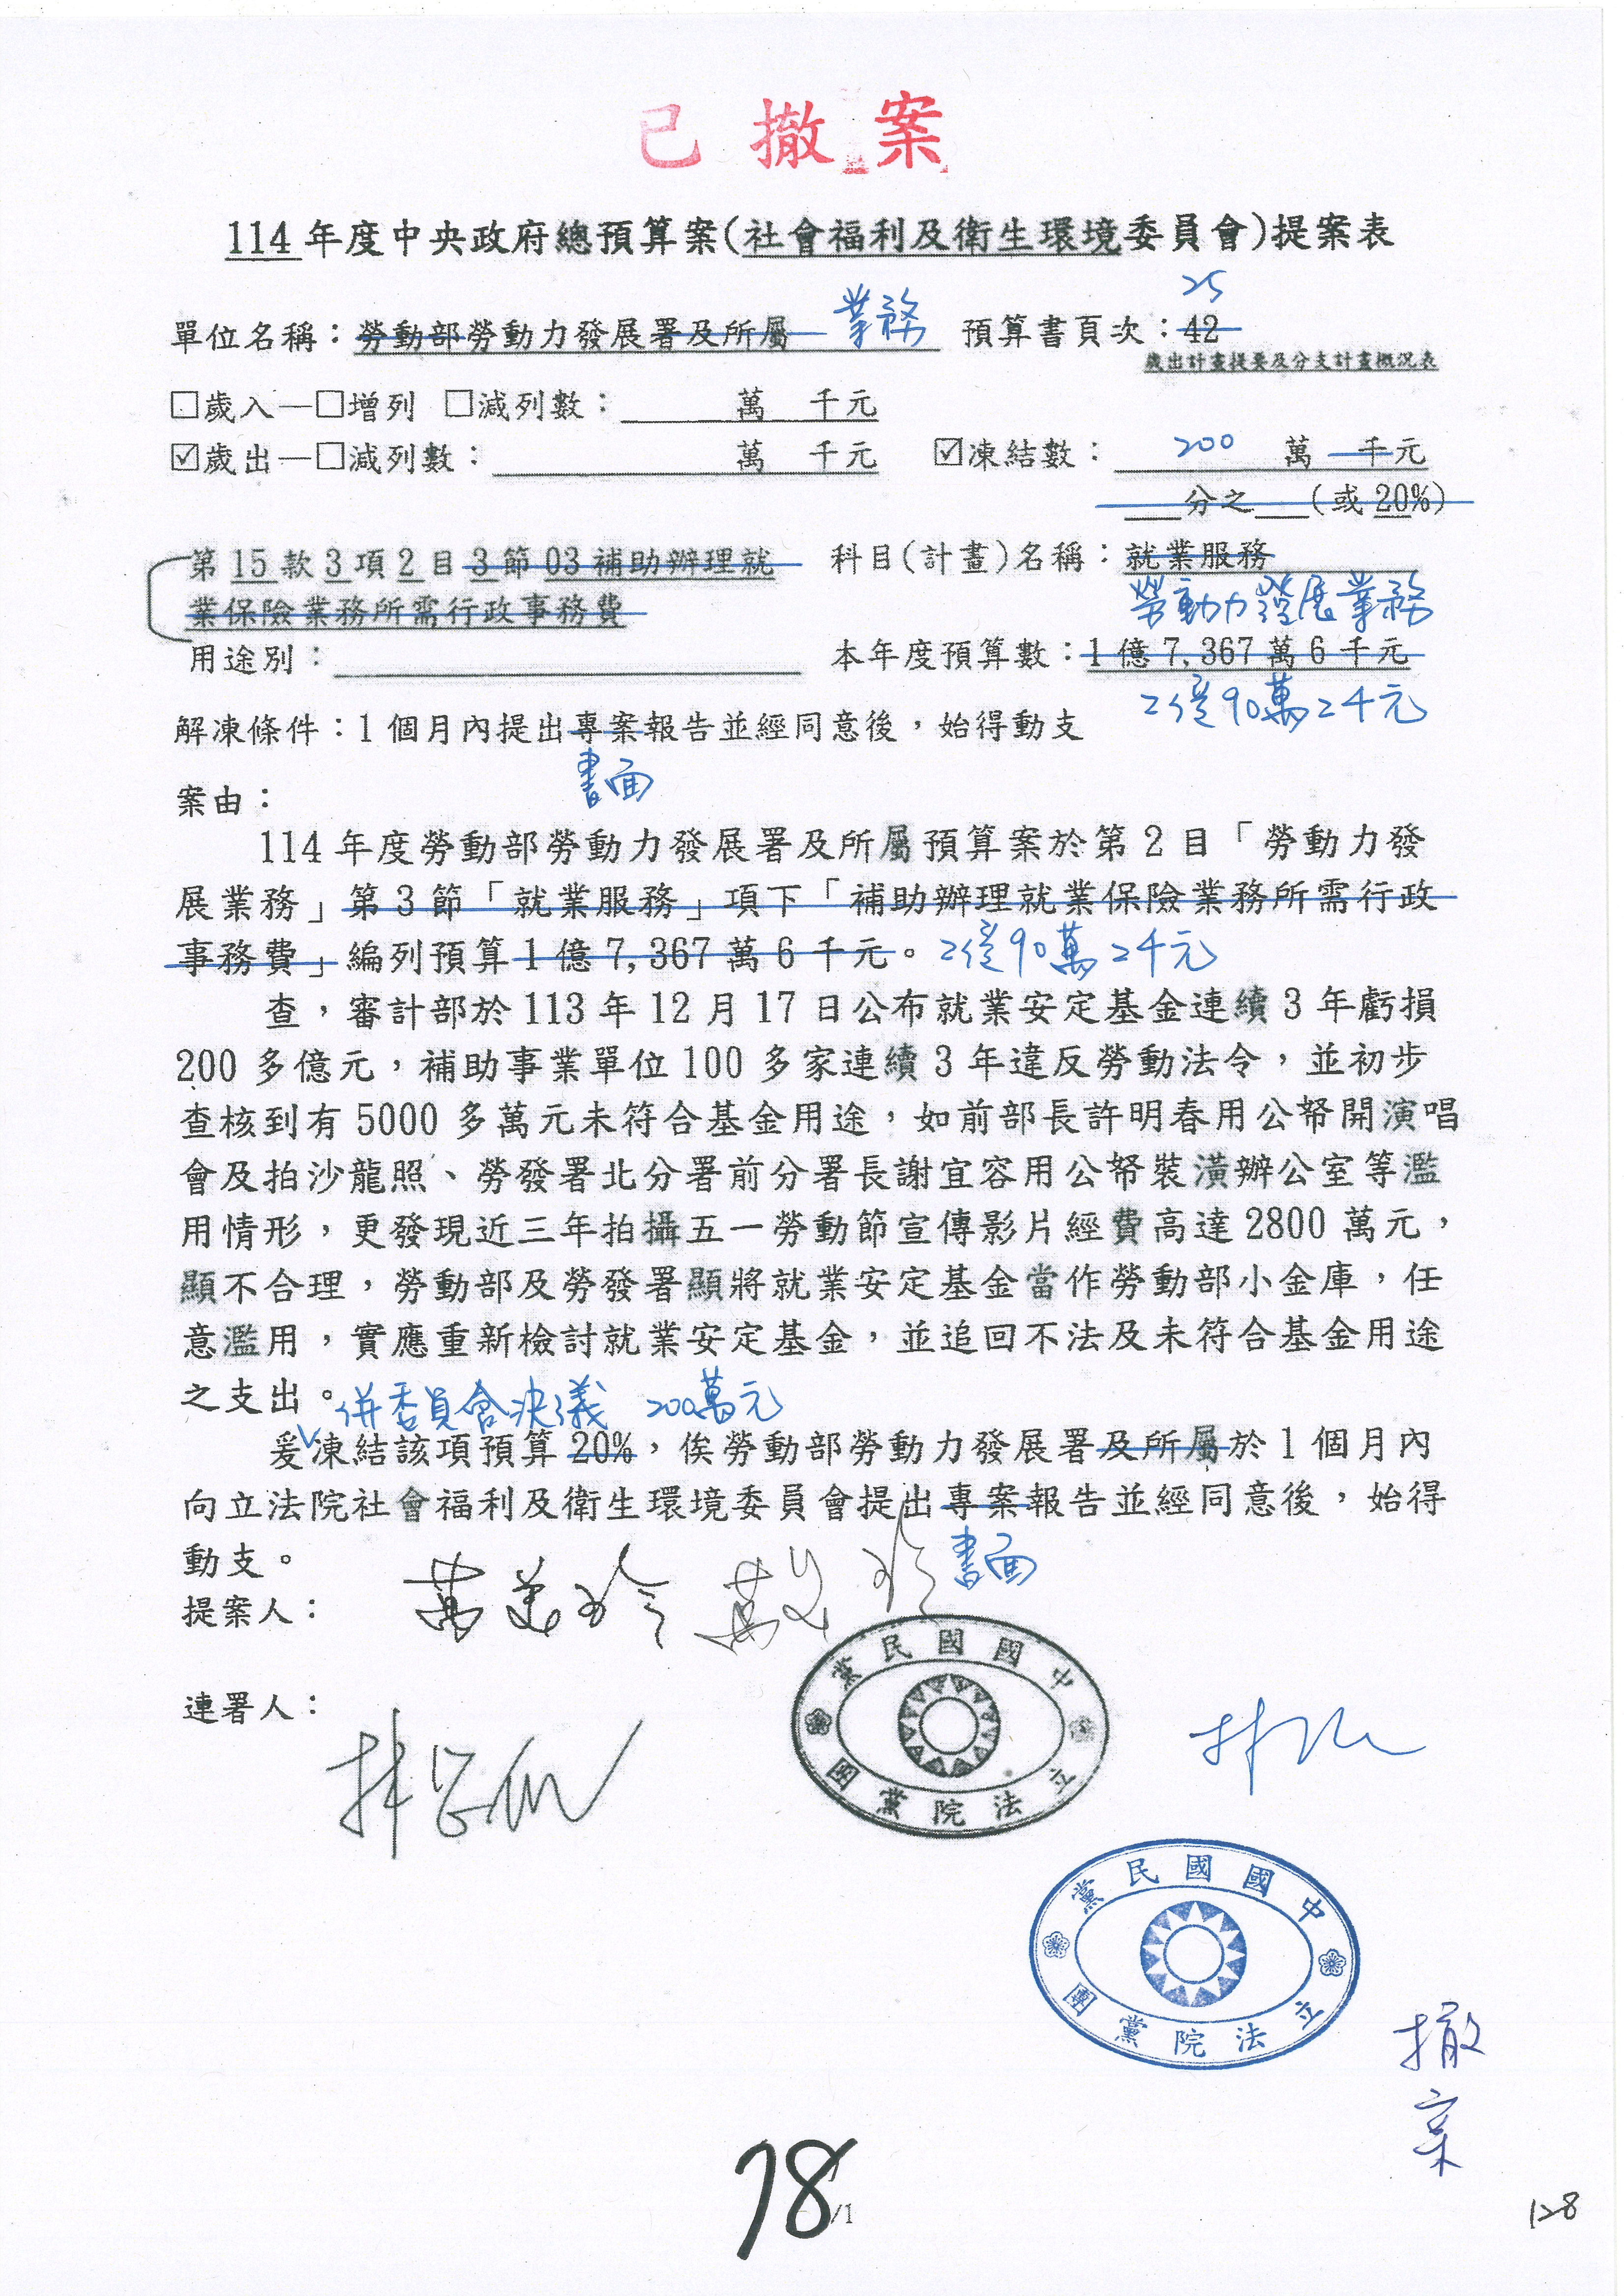 已撤案
114年度中央政府總預算案(社會福利及衛生環境委員會)提案表
25
單位名稱：勞動部勞動力發展署及所屬 業務 預算書頁次：42
歲出計畫提要及分支計畫概況表
□歲入—□增列 □減列數： 萬 千元
☑歲出—□減列數： 萬 千元 ☑凍結數： 200 萬 千元
分之 (或 20%)
第 15 款 3 項 2 目 3 節 03 補助辦理就 科目(計畫)名稱：就業服務
業保險業務所需行政事務費 勞動力發展業務
用途別： 本年度預算數：1 億 7,367 萬 6 千元
2億90萬2千元
解凍條件：1 個月內提出專案報告並經同意後，始得動支
書面
案由：
114 年度勞動部勞動力發展署及所屬預算案於第 2 目「勞動力發
展業務」第 3 節「就業服務」項下「補助辦理就業保險業務所需行政
事務費」編列預算 1 億 7,367 萬 6 千元。2億90萬2千元
查，審計部於 113 年 12 月 17 日公布就業安定基金連續 3 年虧損
200 多億元，補助事業單位 100 多家連續 3 年違反勞動法令，並初步
查核到有 5000 多萬元未符合基金用途，如前部長許明春用公帑開演唱
會及拍沙龍照、勞發署北分署前分署長謝宜容用公帑裝潢辦公室等濫
用情形，更發現近三年拍攝五一勞動節宣傳影片經費高達 2800 萬元，
顯不合理，勞動部及勞發署顯將就業安定基金當作勞動部小金庫，任
意濫用，實應重新檢討就業安定基金，並追回不法及未符合基金用途
之支出。
併委員會決議 200萬元
爰凍結該項預算 20%，俟勞動部勞動力發展署及所屬於 1 個月內
向立法院社會福利及衛生環境委員會提出專案報告並經同意後，始得
動支。 書面
提案人： 萬美玲
連署人：
中國國民黨
立法院黨團
中國國民黨
立法院黨團
撤案
78
/1
128